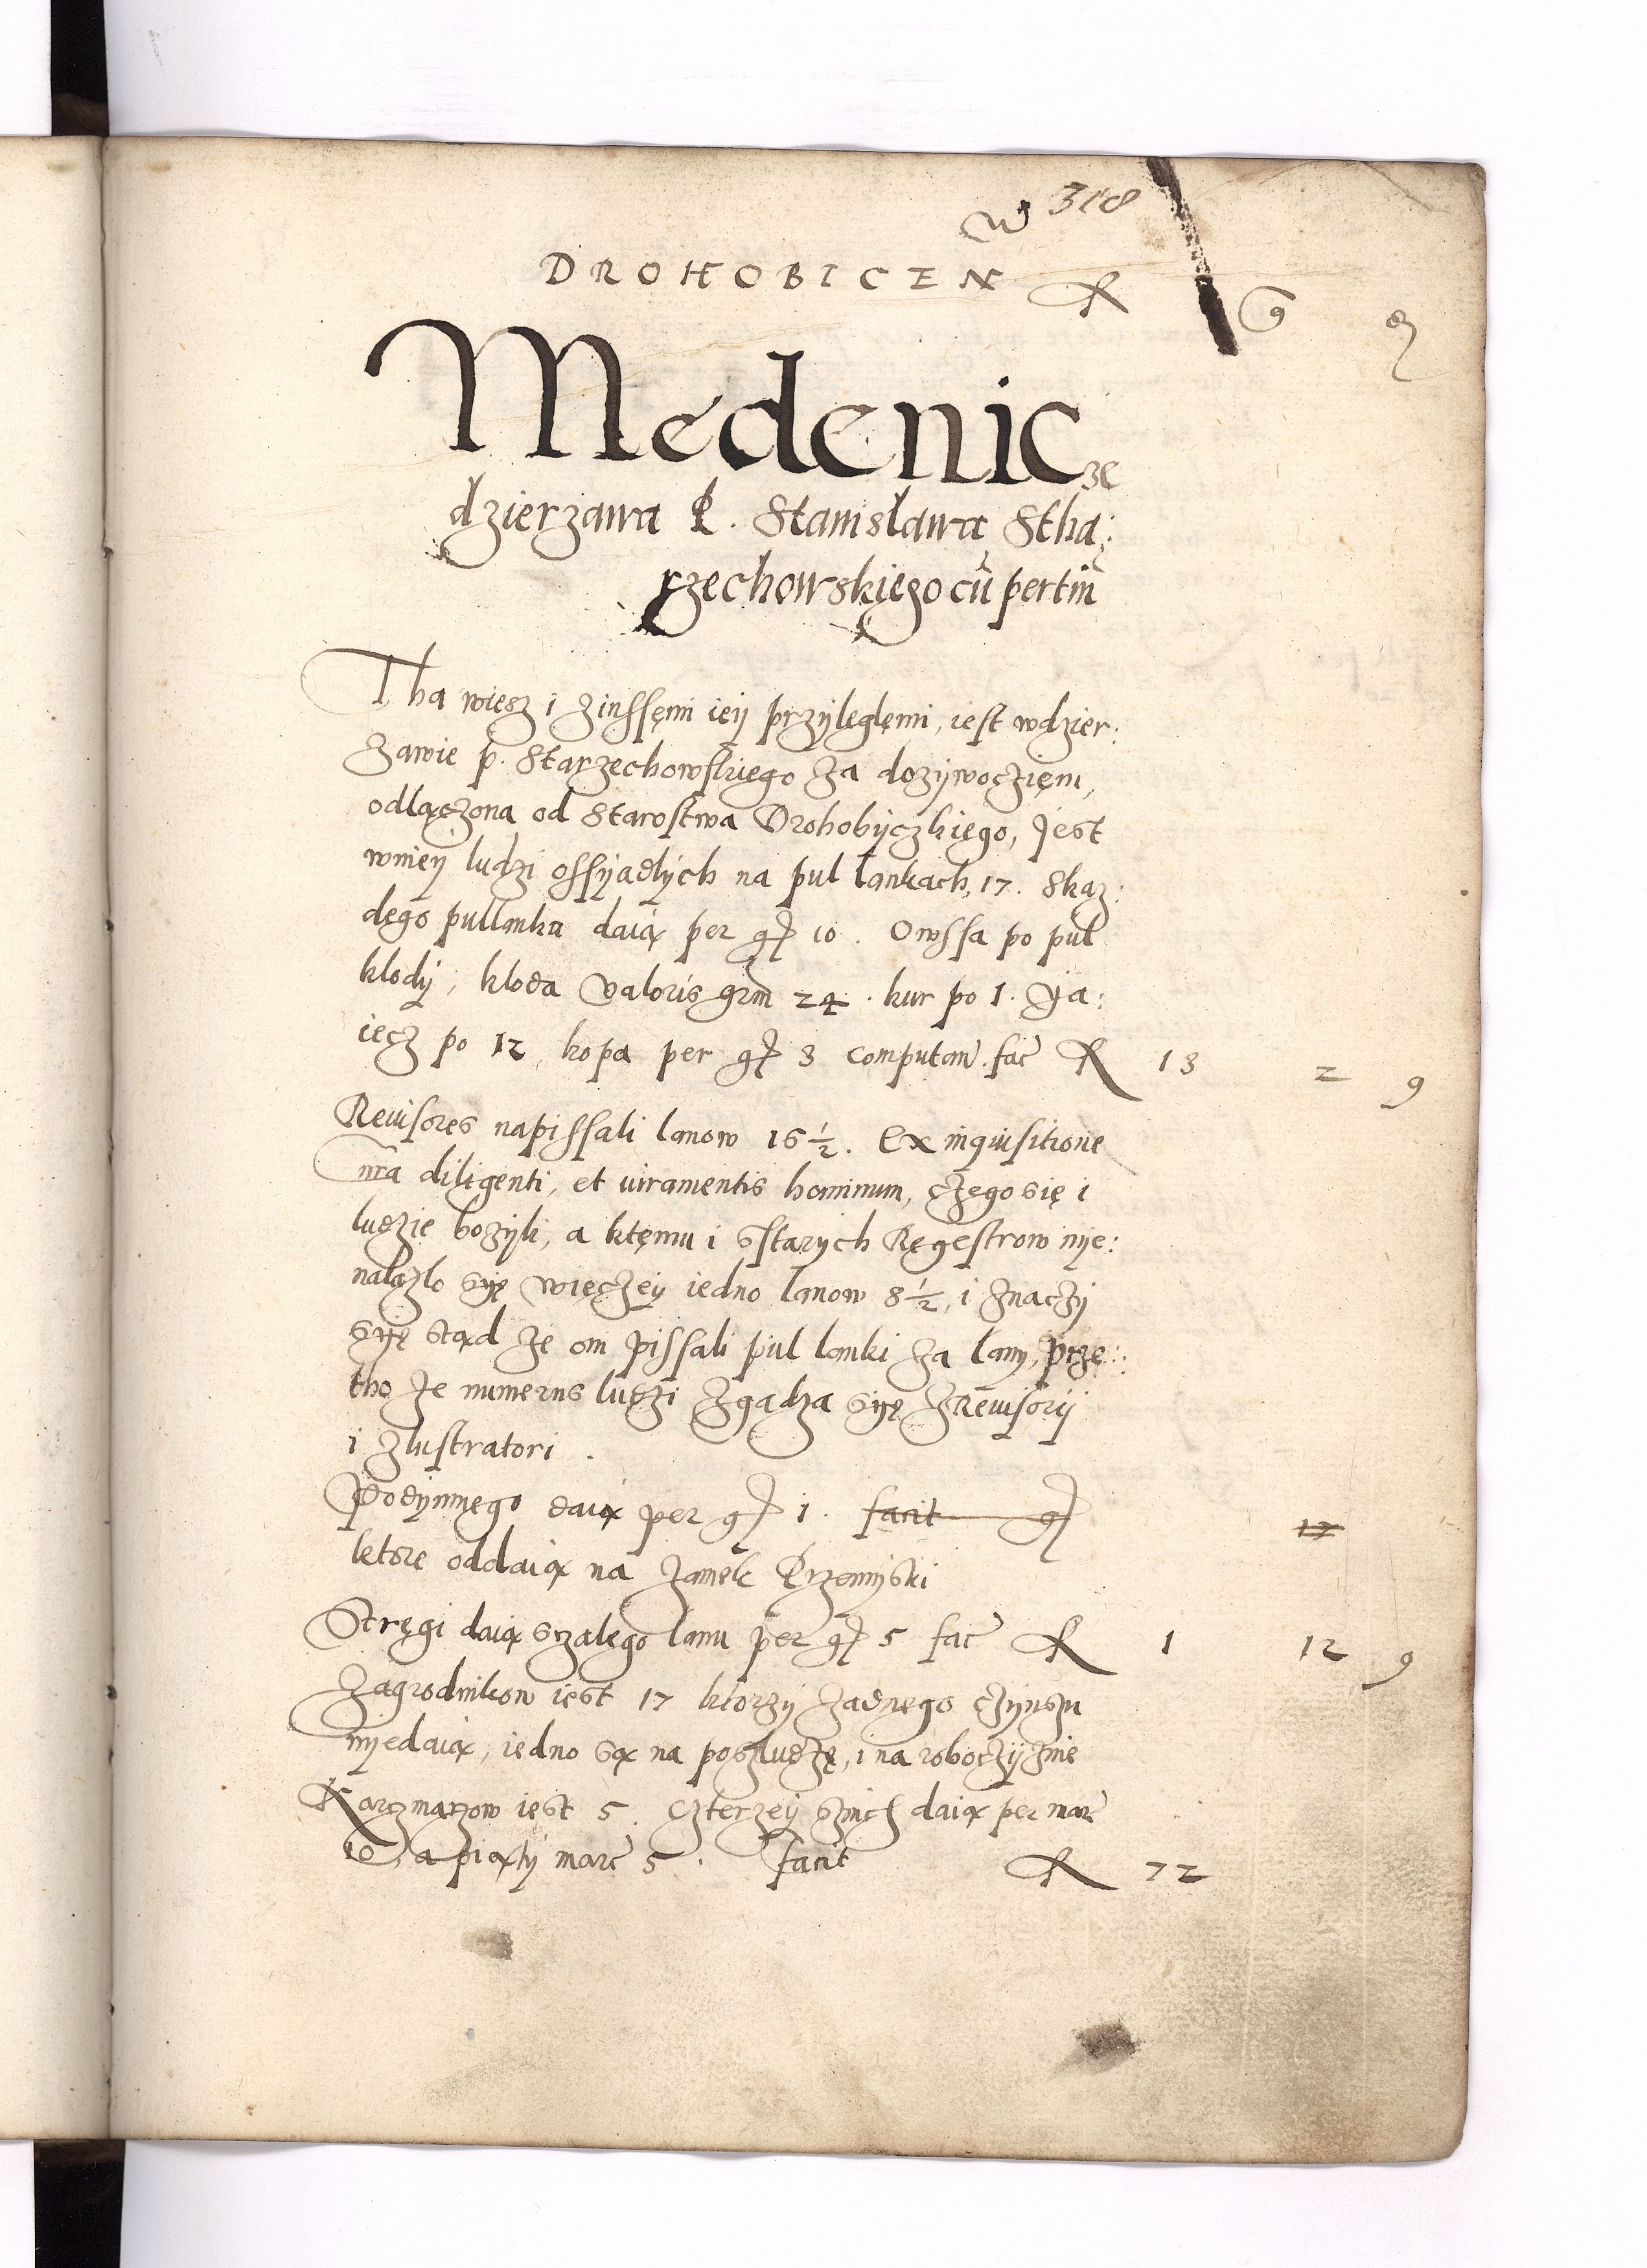 w 318
DROHOBICEN
Medenicze
dzierzawa P. Stanisława Stha:
rzechowskięgo cu pertin
Tha wiesz i zinssęmi ieÿ przÿlęglęmi, iest wdzier:
zawie p. Starzechowskięgo za dozÿwoczięm,
odlączona od Starostwa Drohobÿczkięgo, Jest
wnięÿ ludzi ossÿadlÿch na pul lankach 17. Skaz:
dęgo pullanka daią per g 10. Owssa po pul
klodÿ, kloda valoris grm 24. kur po 1. Ja:
iecz po 12, kopa per g 3 computan. fac R 13 2 9
Reuisores napissali lanow 16 ½. Ex inquisitione
nra diligenti, et iuramentis hominum, czego się i
ludzie bozÿli, a ktęmu i sstarÿch Ręgestrow nÿe:
nalazlo sÿę więczeÿ iedno lanow 8 ½, i znaczÿ
sÿę stąd ze oni pissali pul lanki za lanÿ, prze:
tho ze numerus ludzi zgadza sÿę zReuisorÿ
i zlustratori.
Podÿmnęgo daią per g 1. facit g 17
ktore oddaią na zamek Przemÿski
Stręgi daią sczalęgo lanu per g 5 fac R 1 12 9
Zagrodnikow iest 17 ktorzÿ zadnęgo czÿnszu
nÿedaią, iedno są na posludzę, i na roboczÿznie
Karczmarzow iest 5. Czterzeÿ sznich daią per marc
10, a piątÿ marc 5. facit R 72